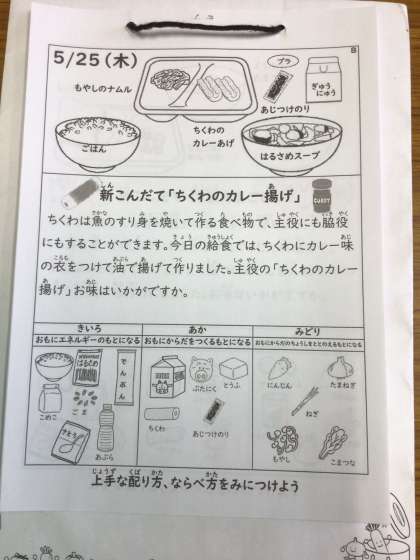 5/25(木)
B
もやしのナムル
プラ
ぎゅう
にゅう
あじつけのり
ちくわの
カレーあげ
ごはん
はるさめスープ
新こんだて「ちくわのカレー揚げ」
CURRY
ちくわは魚のすり身を焼いて作る食べ物で、主役にも脇役
にもすることができます。今日の給食では、ちくわにカレー味
の衣をつけて油で揚げて作りました。主役の「ちくわのカレー
揚げ」お味はいかがですか。
きいろ
おもにエネルギーのもとになる
はるさめ
でんぷん
こめこ
ごま
さとう
あぶら
あか
おもにからだをつくるもとになる
ぶたにく
とうふ
ちくわ
あじつけのり
みどり
おもにからだのちょうしをととのえるもとになる
にんじん
たまねぎ
ねぎ
もやし
こまつな
上手な配り方、ならべ方をみにつけよう